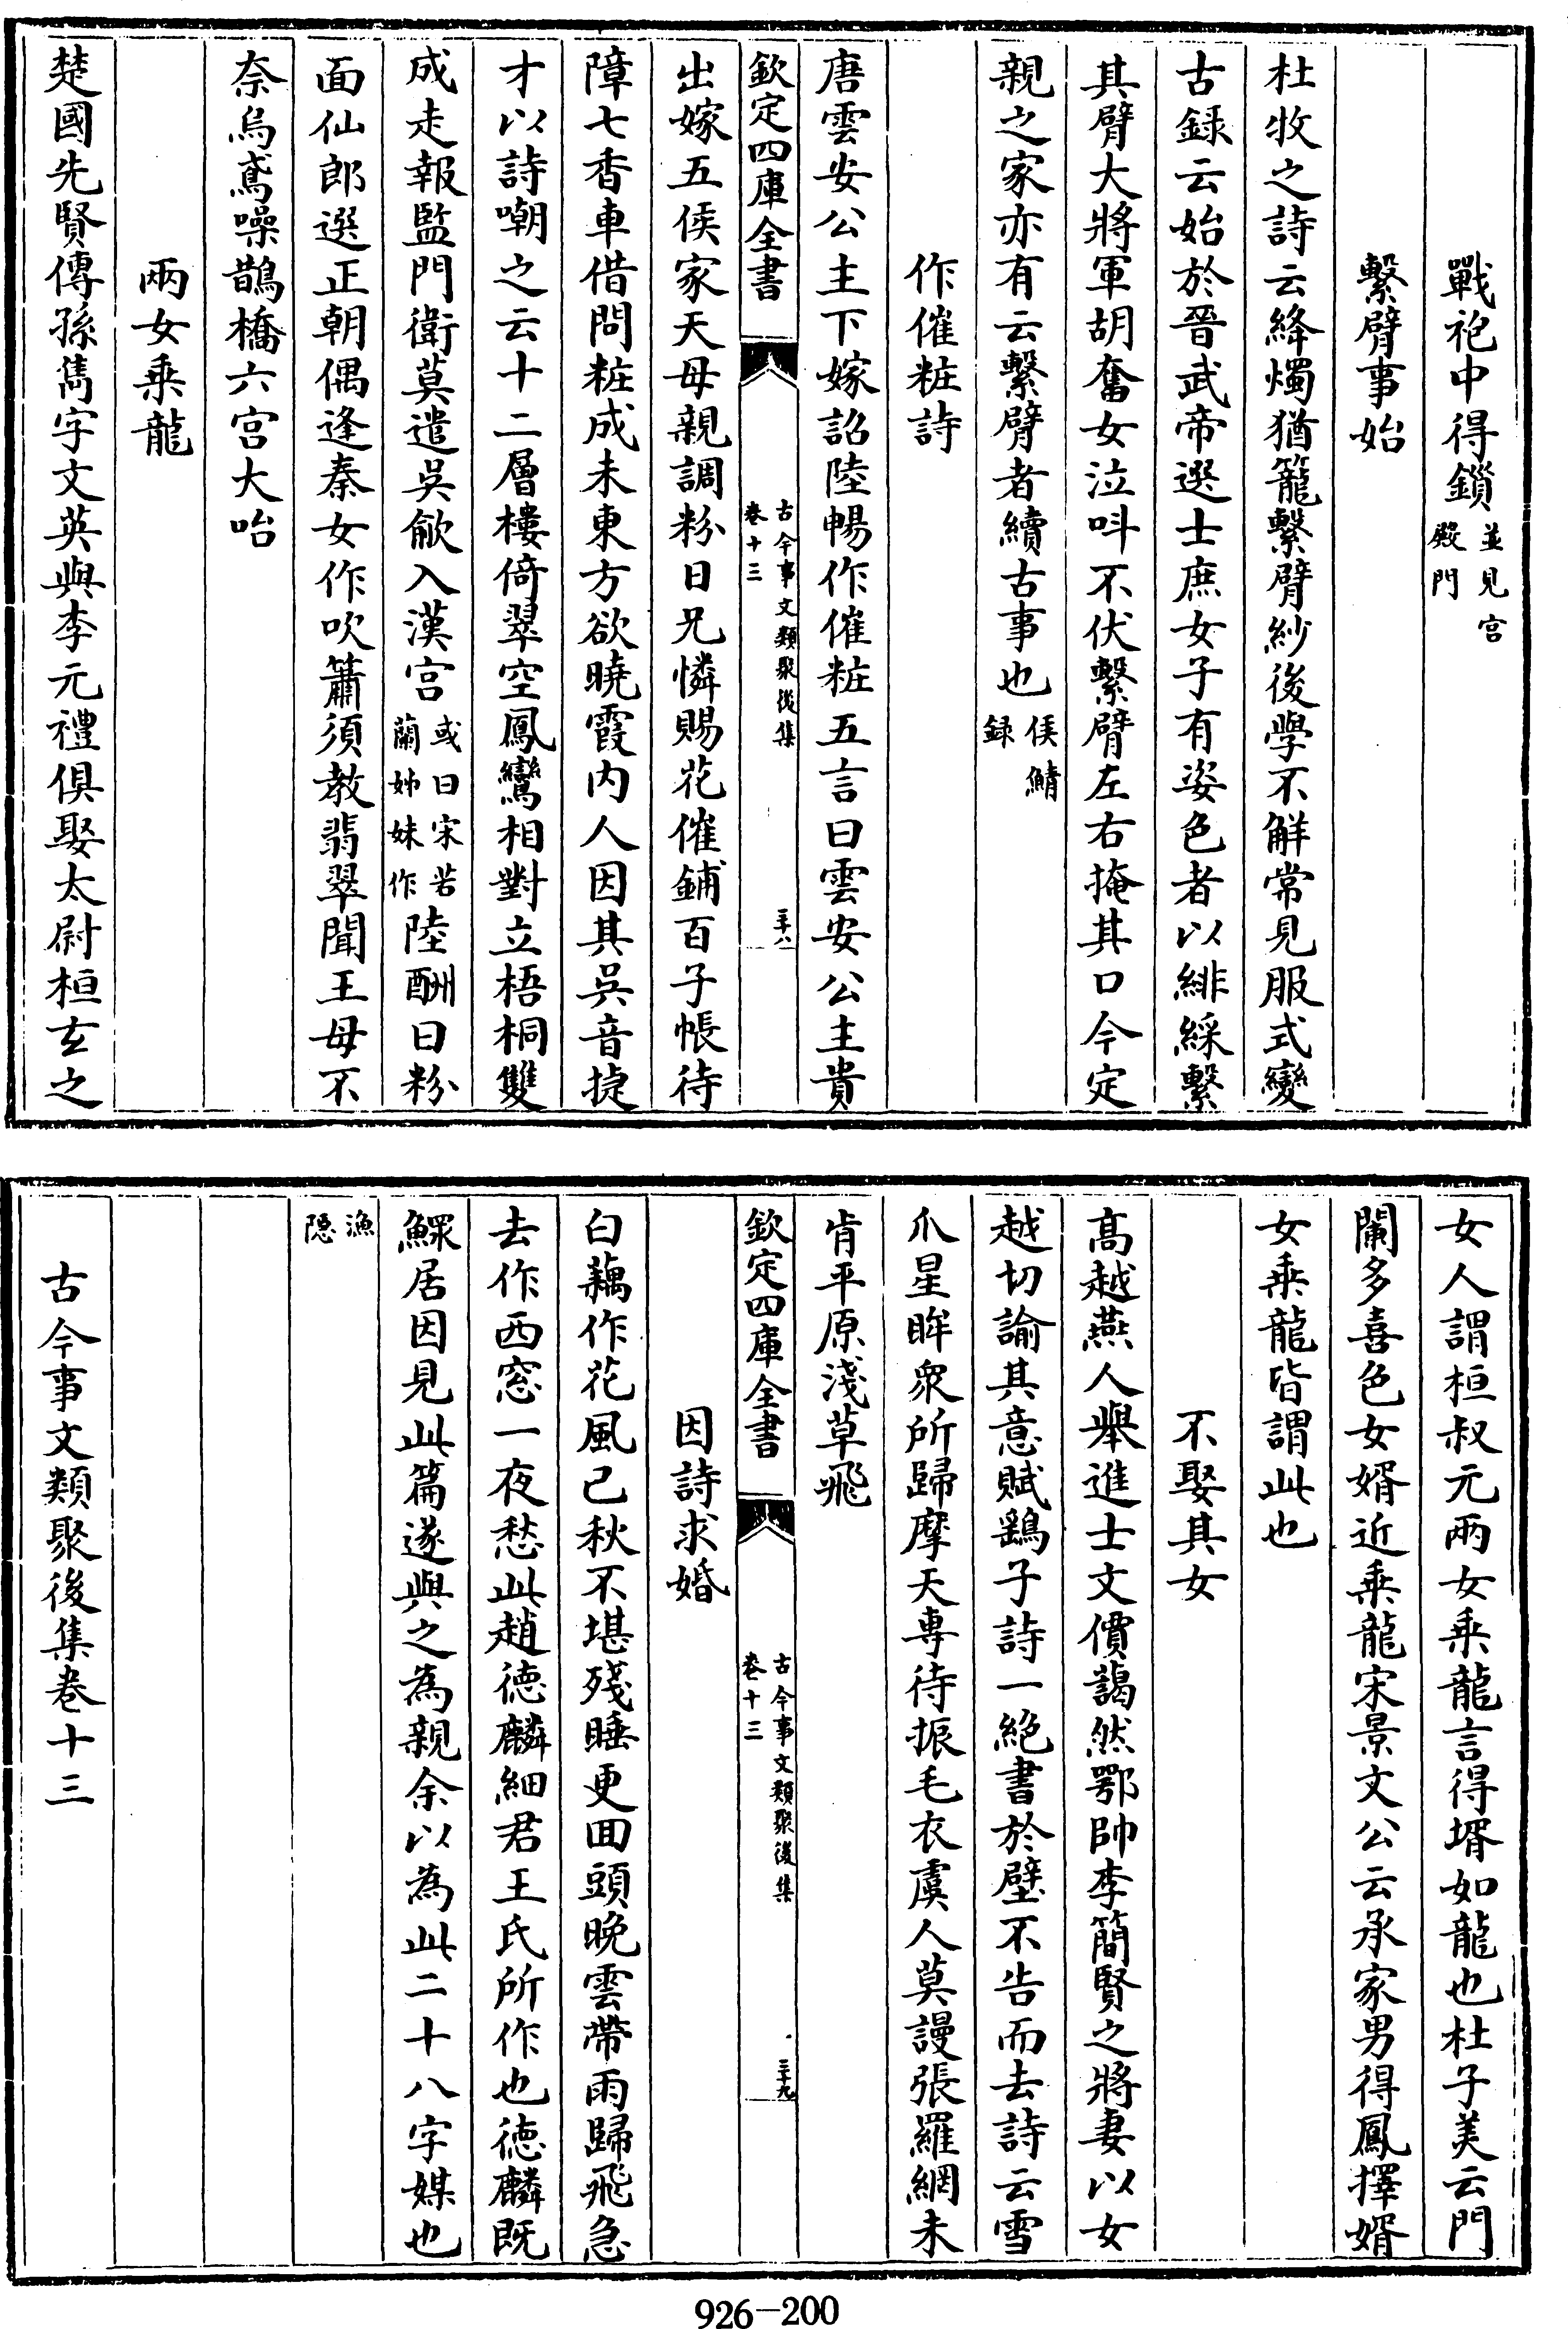 戰袍中得鎖並見宮殿門
繫臂事始
杜牧之詩云絳燭猶籠繫臂紗後學不解常見服式變
古録云始於晉武帝選士庶女子有姿色者以緋綵繫
其臂大將軍胡奮女泣呌不伏繫臂左右掩其口今定
親之家亦有云繫臂者續古事也侯鯖録
作催粧詩
唐雲安公主下嫁詔陸暢作催粧五言曰雲安公主貴
欽定四庫全書
古今事文類聚後集
卷十三
三十八
出嫁五侯家天母親調粉日兄憐賜花催鋪百子帳待
障七香車借問粧成未東方欲曉霞内人因其吳音捷
才以詩嘲之云十二層樓倚翠空鳳鸞相對立梧桐雙
成走報監門衛莫遣吳歈入漢宮或曰宋若蘭姊妹作陸酬曰粉
面仙郎選正朝偶逢秦女作吹簫須教翡翠聞王母不
奈烏鳶噪鵲橋六宮大咍
兩女乗龍
楚國先賢傳孫雋字文英與李元禮俱娶太尉桓玄之
女人謂桓叔元兩女乗龍言得壻如龍也杜子美云門
闌多喜色女婿近乗龍宋景文公云承家男得鳳擇婿
女乗龍皆謂此也
不娶其女
高越燕人舉進士文價藹然鄂帥李簡賢之將妻以女
越切諭其意賦鷂子詩一絶書於壁不告而去詩云雪
爪星眸衆所歸摩天專待振毛衣虞人莫謾張羅網未
肯平原淺草飛
欽定四庫全書
古今事文類聚後集
卷十三
三十九
因詩求婚
白藕作花風已秋不堪殘睡更囬頭晚雲帶雨歸飛急
去作西窓一夜愁此趙德麟細君王氏所作也德麟既
鰥居因見此篇遂與之為親余以為此二十八字媒也
漁隱
古今事文類聚後集卷十三
926-200